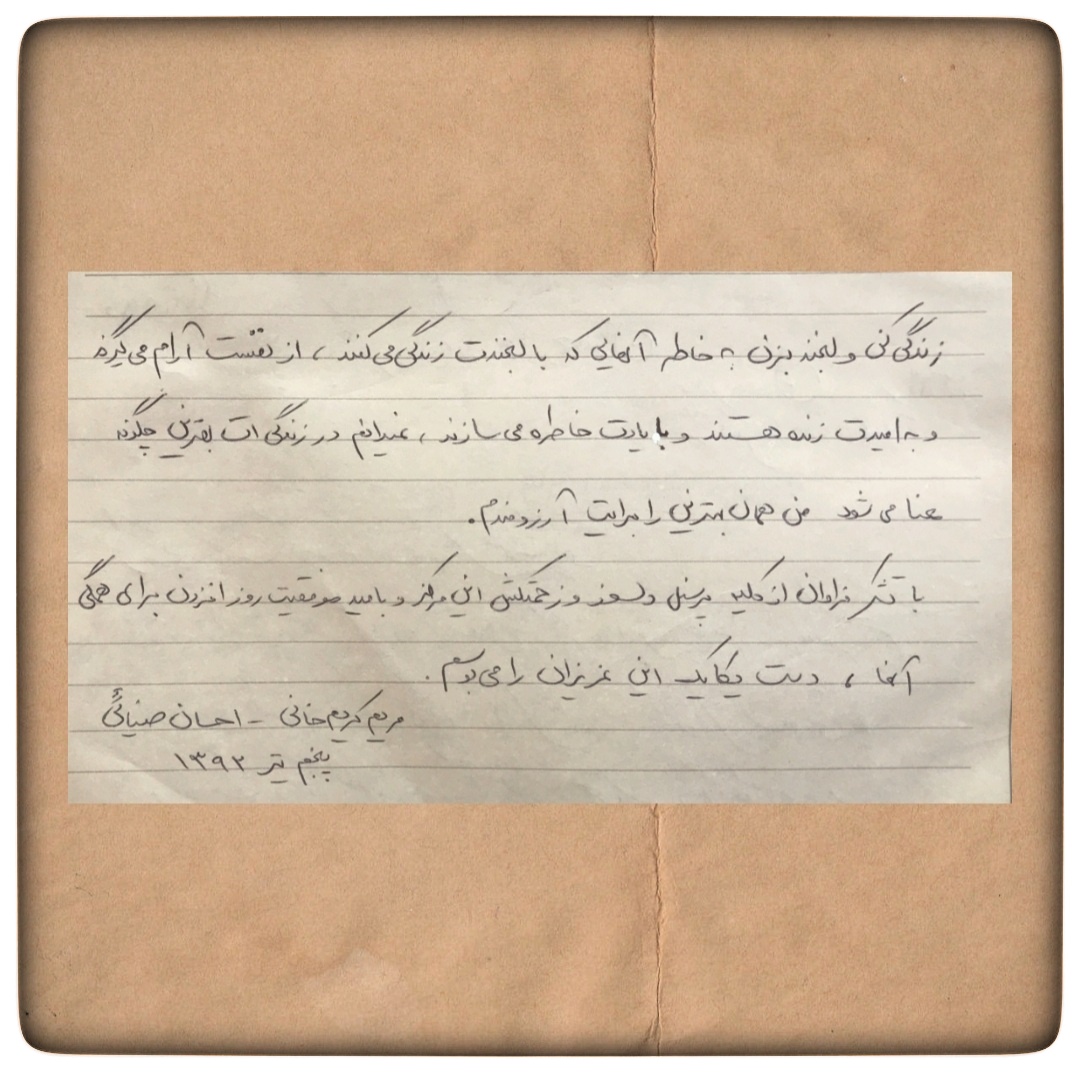 زندگی کن و لبخند بزن به خاطر آنهایی که با لبخندت زندگی می کنند ، از نفست آرام می گیرند
و به امیدت زنده هستند و با یادت خاطره می سازند ، نمیدانم در زندگی ات بهترین چگونه
معنا می شود من همان بهترین را برایت آرزومندم .
با تشکر فراوان از کلیه پرسنل دلسوز و زحمتکش این مرکز و با امید موفقیت روز افزون برای همگی
آنها ، دست یکایک این عزیزان را می بوسم .
مریم کریم خانی - احسان ضیائی
پنجم تیر ۱۳۹۲